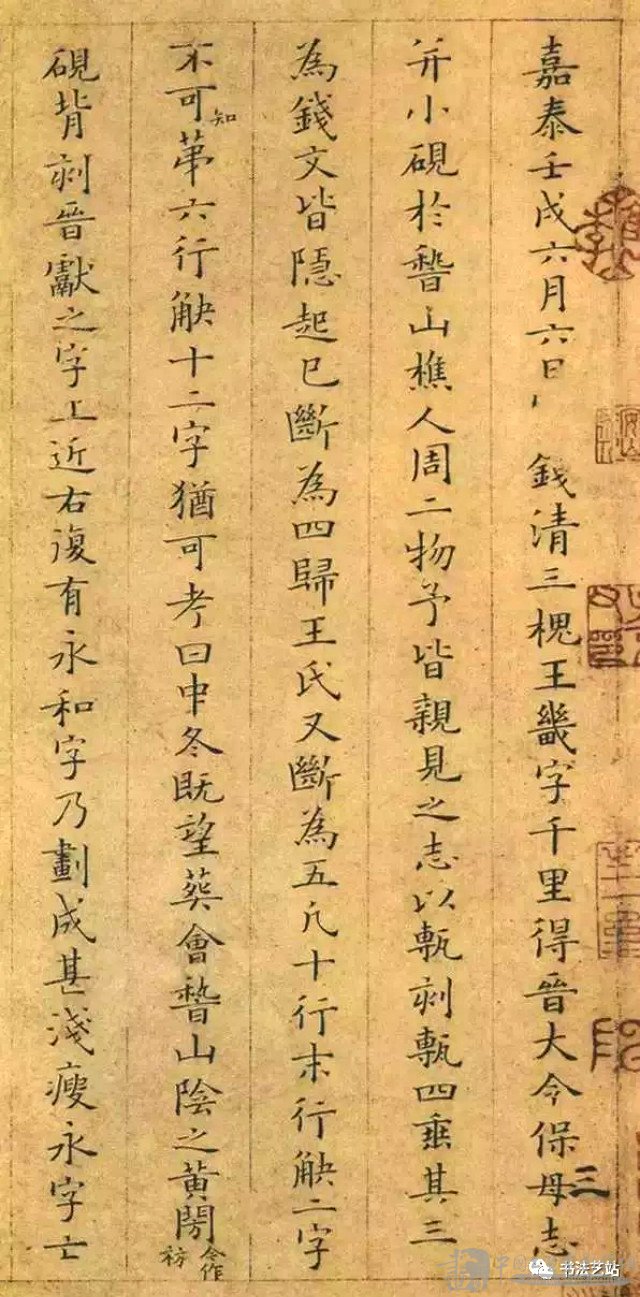 嘉泰壬戌六月六日錢清三槐王畿字千里得晉大令保母志
并小硯於稽山樵人周二物予皆親見之志以甎刻甎四垂其三
為錢文皆隱起已斷為四歸王氏又斷為五凡十行末行觖二字
不可知苐六行觖十二字猶可考曰中冬既望葵會稽山陰之黃閍
合作祊
硯背刻晉獻之字上近右復有永和字乃劃成甚淺瘦永字亡
三
书法艺站